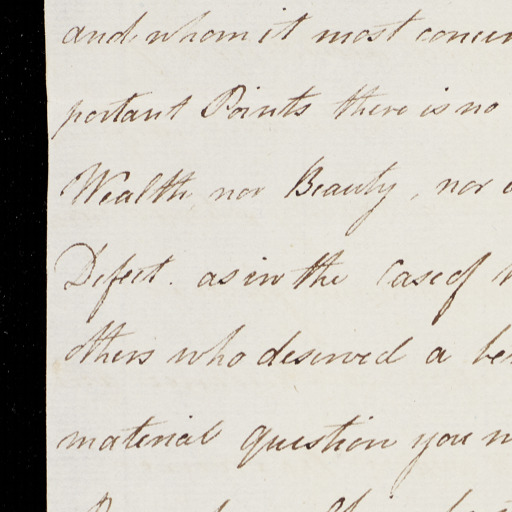 and whom it most concern
portant Points there is no
Wealth, nor Beauty, nor
Defect. as in the Case of
others who deserved a
material question you